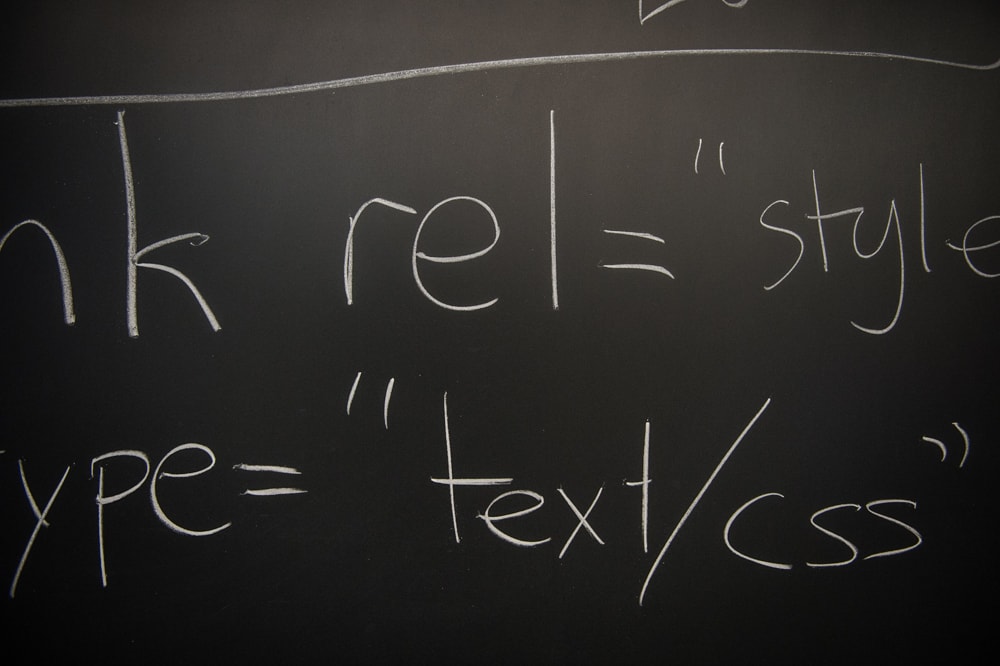 nk rel="style
ype="text/css"